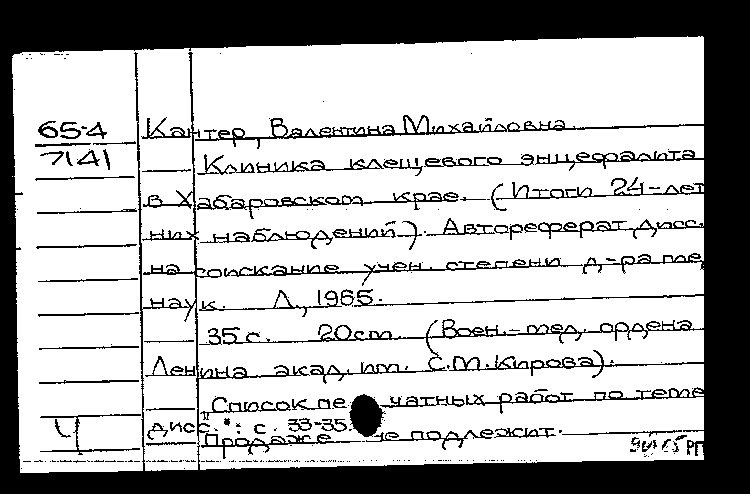 65-4 Кантер, Валентина Михайловна.
7141 Клиника клещевого энцефалита
в Хабаровском крае. (Итоги 24-лет
них наблюдений). Автореферат дисс.
на соискание учен. степени д-ра ме
наук. Л., 1965.
35 с. 20cm (Воен.-мед. ордена
Ленина акад. им. С.М.Кирова).
"Список пе чатных работ по теме
Ч дисс.": с. 33-35.
Продаже не подлежит.